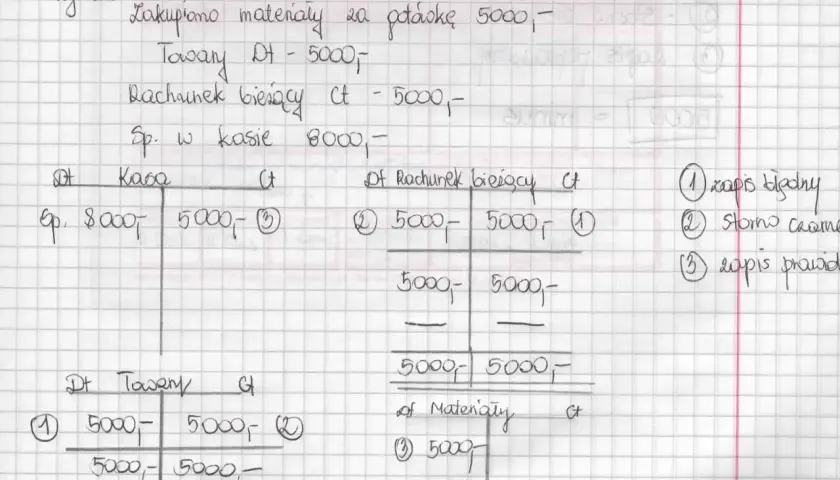 Zakupiono materiały za gotówkę 5000,-
Towary Dt - 5000,-
Rachunek bieżący Ct - 5000,-
Sp. w kasie 8000,-
Dt Kasa Ct
Sp. 8000,- 5000,- ③
Dt Rachunek bieżący Ct
② 5000,- 5000,- ①
5000,- 5000,-
— —
5000,- 5000,-
① zapis błędny
② storno czarne
③ zapis prawid
Dt Towary Ct
① 5000,- 5000,- ②
5000,- 5000,-
Dt Materiały Ct
③ 5000,-